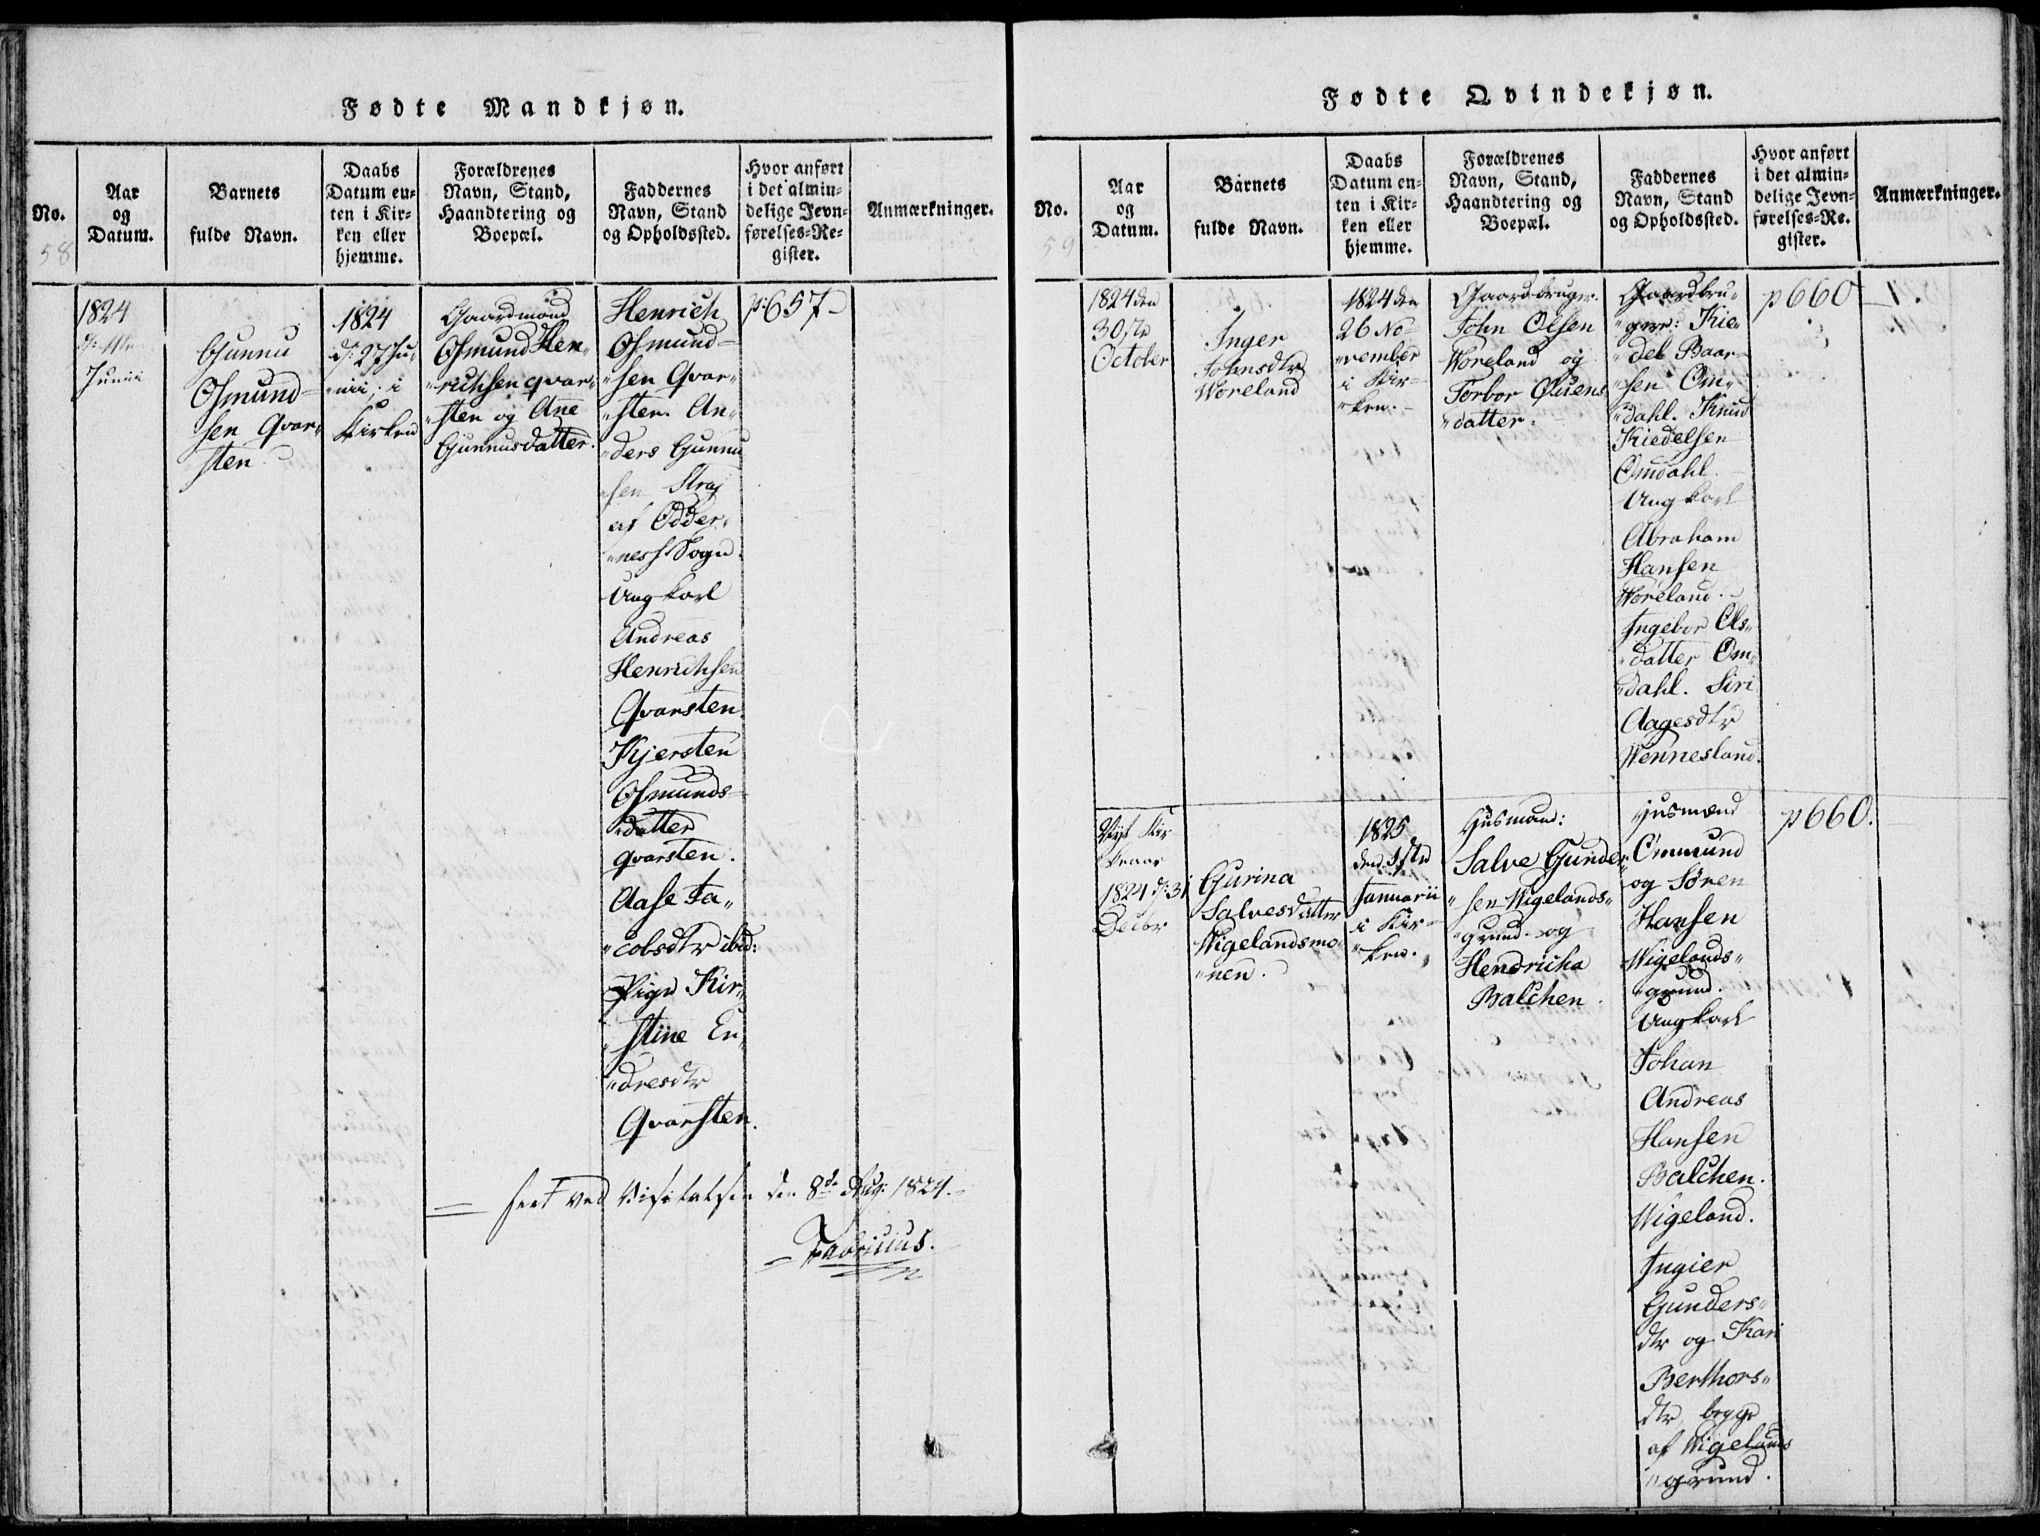 Fødte Mandkjøn.
No.
58
Aar
og
Datum.
Barnets
fulde Navn.
Daabs
Datum en-
ten i Kir-
ken eller
hjemme.
Forældrenes
Navn, Stand,
Haandtering og
Boepæl.
Faddernes
Navn, Stand
og Opholdssted.
Hvor anført
i det almin-
delige Jevn-
førelses-Re-
gister.
Anmærkninger.
1824
Junii
Gunnu
Osmund-
sen Qvar-
sten.
1824
d: 27 Ju-
"nii, i
Kirken
Gaardmand
Osmund Hen-
"richsen qvar-
"sten og Ane
Gunnusdatter.
Henrich
Osmund-
"sen Qvar-
"sten. An-
"ders Gunnu
"sen Stray
af Odder-
"ness Sogn.
Ung karl
Andreas
Henrichsen
Qvarsten.
Kjersten
Osmunds-
"datter
qvarsten.
Aase Ja-
"cobsdtr ibid:
Pige Kir-
"stine En-
"dresdtr
Qvarsten.
p: 657-
seet ved Visitatsen den 8de Aug: 1824.
Fabricius.
Fødte Qvindekjøn.
No.
59
Aar
og
Datum.
Barnets
fulde Navn.
Daabs
Datum en-
ten i Kir-
ken eller
hjemme.
Forældrenes
Navn, Stand,
Haandtering og
Boepæl.
Faddernes
Navn, Stand
og Opholdssted.
Hvor anført
i det almin-
delige Jevn-
førelses-Re-
gister.
Anmærkninger.
1824 den
30te
October
Inger
Johnsdtr
Woreland
1824 den
26 No-
"vember
i Kir-
"ken.
Gaardbruger
John Olsen
Woreland og
Torbor
"datter.
Gaardbru-
"gere: Kie-
"del Baar-
"sen Om-
"dahl. Knud
Kiedelsen
Omdahl.
Ung karl
Abraham
Hansen
Woreland.
Ingebor Ols-
"datter Om-
"dahl. Siri
Aagesdtr
Wennesland.
p 660
Nyt Kir
keaar
1824 d: 31
Decbr
Gurina
Salvesdatter
Wigelandsmo-
"nen.
1825
den 1ste
Januarii
i Kir-
"ken.
Husmand:
Salve Gunder-
"sen Wigelands-
"grund og
Hendricha
Balchen.
Husmænd
Ommund
og Søren
Hansen
Wigelands-
"grund.
Ung karl
Johan
Andreas
Hansen
Balchen.
Wigeland.
Ingier
Gunders-
dtr og Kari
Berthors-
dtr, begge
af Wigelands
"grund.
p 660.